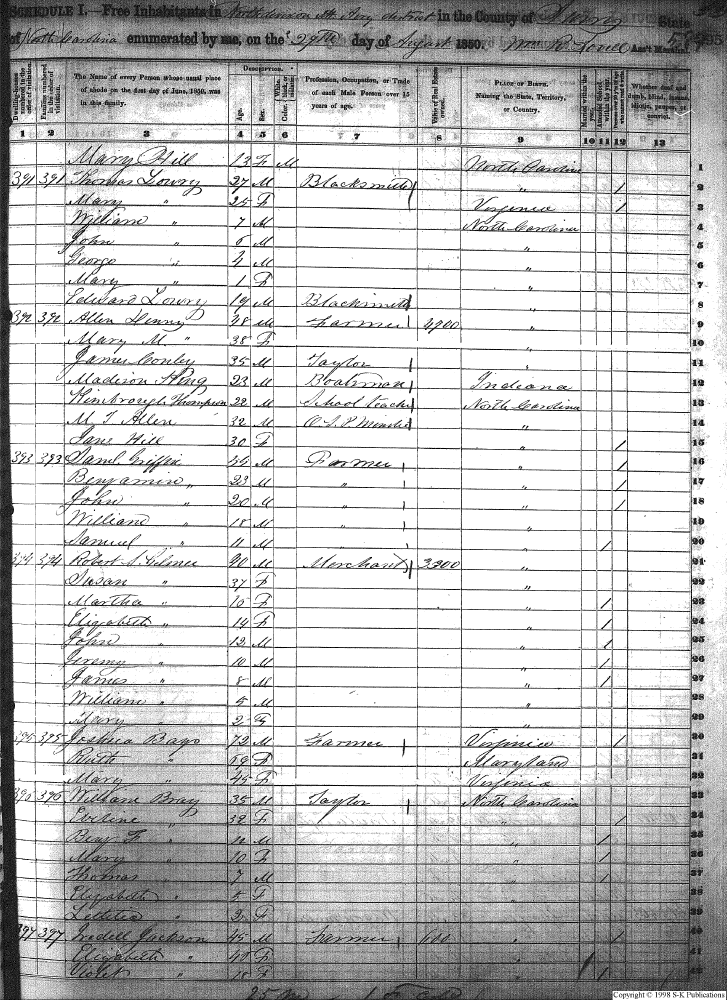 SCHEDULE I.—Free Inhabitants in district in the County of Surry State
of North Carolina enumerated by me, on the 29th day of August 1850. Wm R. Ass't Marshal.
Dwelling-houses numbered in the order of visitation. Families numbered in the order of visitation. The Name of every Person whose usual place of abode on the first day of June, 1850, was in this family. Description. Age. Sex. Color. Profession, Occupation, or Trade of each Male Person over 15 years of age. Value of Real Estate owned. Place of Birth. Naming the State, Territory, or Country. Married within the year. Whether deaf and dumb, blind, insane, idiotic, pauper, or convict.
1 2 3 4 5 6 7 8 9 10 11 12 13
Mary Hill 13 F M North Carolina 1
391 391 Thomas Lowry 27 M Blacksmith " / 2
Mary " 25 F Virginia / 3
William " 7 M North Carolina 4
John " 6 M " 5
George " 4 M " 6
Mary " 1 F " 7
Edward Lowry 19 M Blacksmith " 8
392 392 Allen Denny 48 M Farmer 4900 " 9
Mary M. " 38 F " 10
James Conley 35 M Taylor " 11
Madison King 23 M Boatman Indiana 12
Kimbrough Thompson 22 M School teacher North Carolina 13
M T Allen 32 M " 14
Jane Hill 30 F " / 15
393 393 Saml Griffin 44 M Farmer " / 16
Benjamin " 23 M " " / 17
John " 20 M " " / 18
William " 18 M " " 19
Samuel " 11 M " / 20
394 394 Robert S. Gilmer 40 M Merchant 3300 " 21
Susan " 37 F " 22
Martha " 10 F " / 23
Elizabeth " 14 F " / 24
John " 12 M " / 25
Jeremy " 10 M " / 26
James " 8 M " / 27
William " 5 M " 28
Mary " 2 F " 29
395 395 Joshua 72 M Farmer Virginia / 30
Ruth " F Maryland 31
Mary " 45 F Virginia 32
396 396 William Bray 35 M Taylor North Carolina 33
" 32 F " / 34
Benj. F. " M " / 35
Mary " 10 F " / 36
Thomas " 7 M " / 37
Elizabeth " 5 F " 38
Lettitia " 3 F " 39
397 397 Iredell Jackson 45 M Farmer 600 " / 40
Elizabeth " F 41
Violet " 18 F / 42
Copyright © 1998 S-K Publications